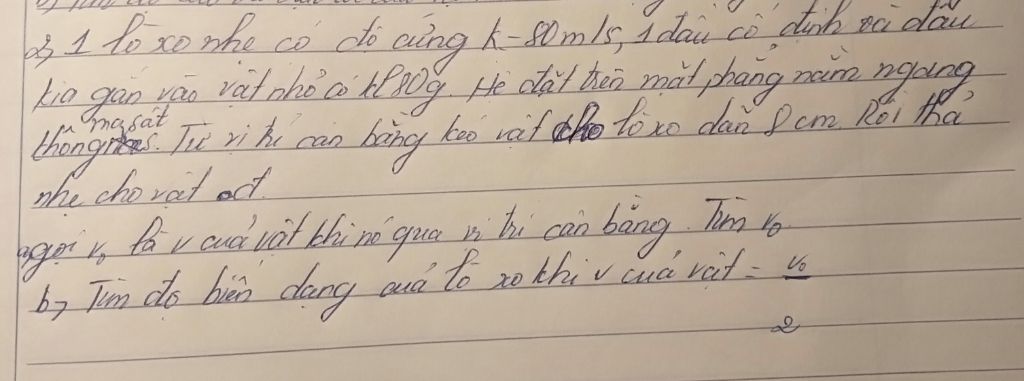 2, 1 lò xo nhẹ có độ cứng k = 80m/s, 1 đầu cố định và đầu
kia gắn vào vật nhỏ có kl 80g. Hệ đặt trên mặt phẳng nằm ngang
ma sát
không. Từ vị trí cân bằng kéo vật cho lò xo dãn 8 cm. Rồi thả
nhẹ cho vật cđ.
a, gọi v₀ là v của vật khi nó qua vị trí cân bằng. Tìm v₀.
b, Tìm độ biến dạng của lò xo khi v của vật = v₀
2